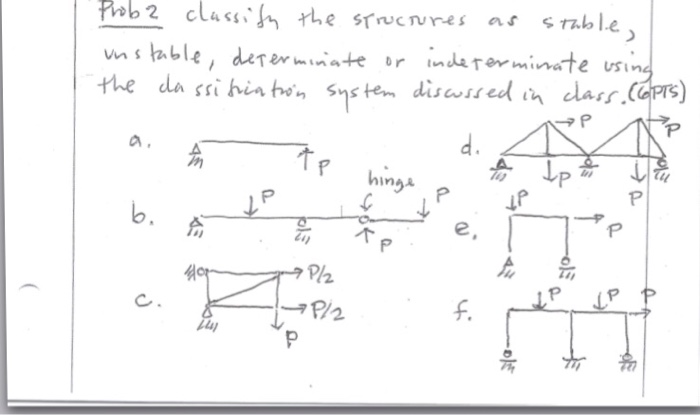 Prob 2 classify the structures as stable,
unstable, determinate or indeterminate using
the classification system discussed in class. (6PTS)
a.
P
d.
P
P
P
P
b.
P
hinge
P
P
e.
P
P
c.
P/2
P/2
P
f.
P
P
P